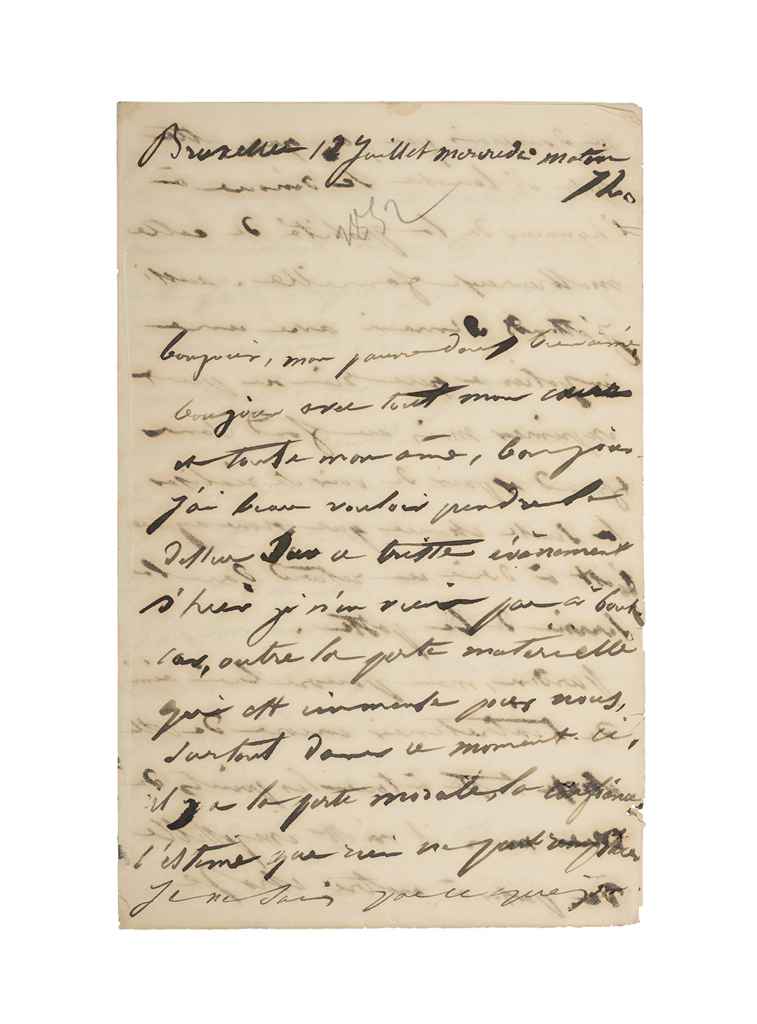 Bruxelles 12 Juillet mercredi matin
7h.
bonjour, mon pauvre doux bien aimé,
bonjour avec tout mon cœur
et toute mon âme, bonjour.
J'ai beau vouloir prendre le
dessus sur ce triste évènement
d'hier je n'en viens pas à bout
car, outre la perte matérielle
qui est immense pour nous,
surtout dans ce moment-ci,
il y a la perte morale, la confiance
l'estime que rien ne peut
Je ne sais pas ce que